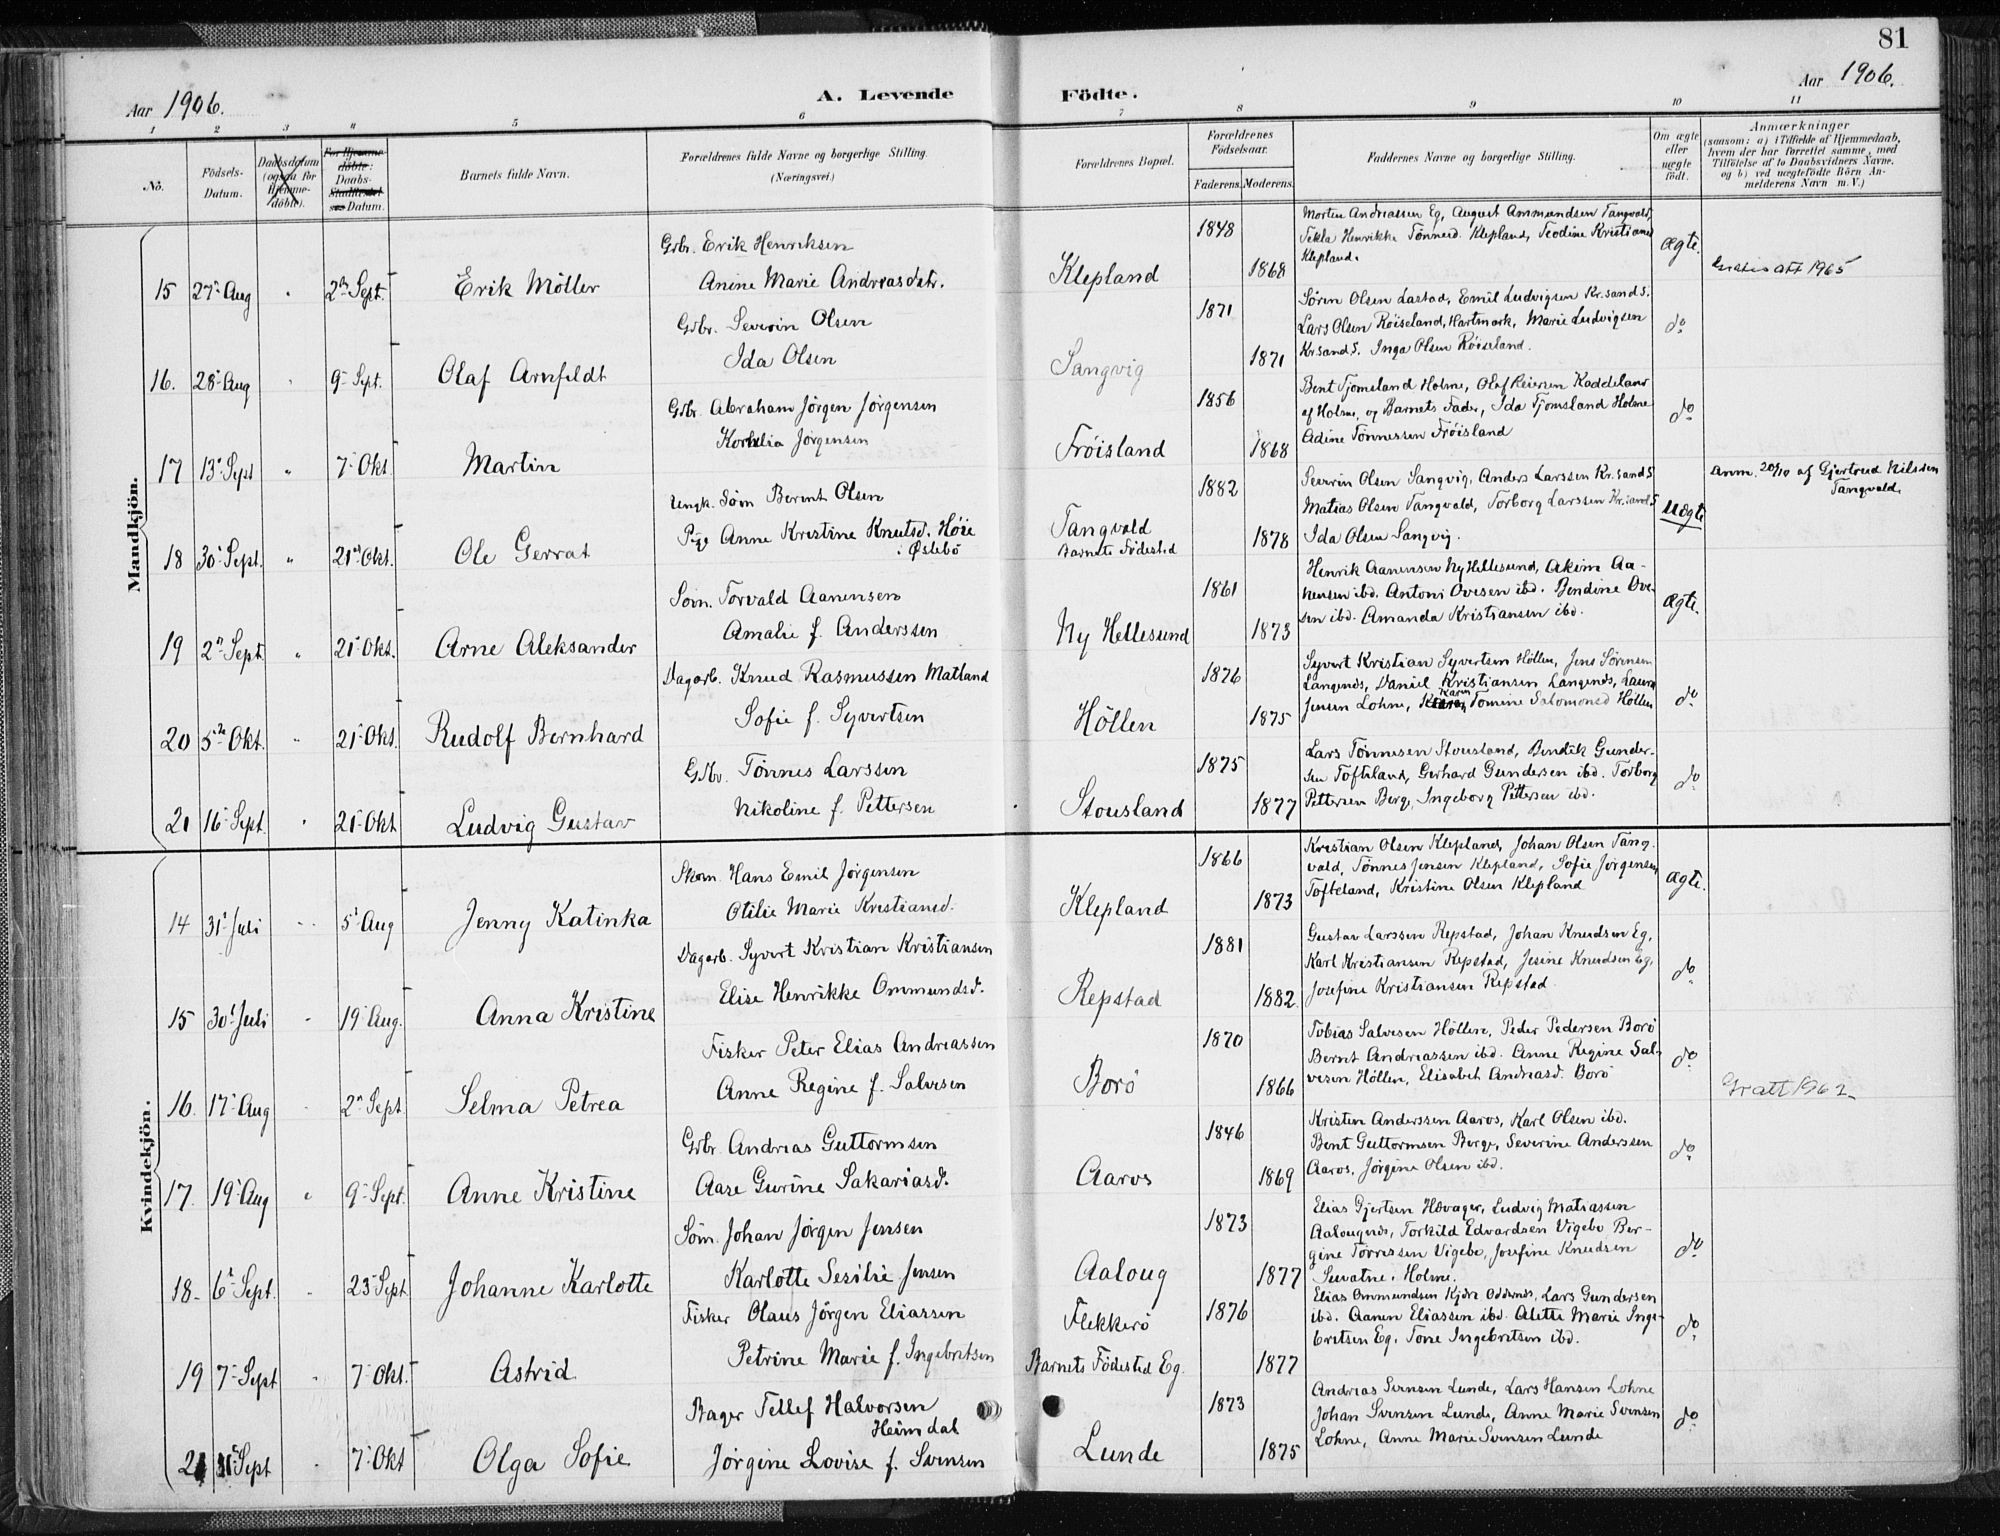 81
Aar 1906.
A. Levende Födte.
Aar 1906.
1 2 3 4 5 6 7 8 9 10 11
No.
Födsels-Datum.
Daabsdatum (ogsaa for Hjemme-döbte).
For Hjemme-döbte: Daabs-Stadfæstel-ses Datum.
Barnets fulde Navn.
Forældrenes fulde Navne og borgerlige Stilling. (Næringsvei.)
Forældrenes Bopæl.
Forældrenes Födselsaar.
Faderens. Moderens.
Faddernes Navne og borgerlige Stilling.
Om ægte eller uægte födt.
Anmærkninger (saasom: a) i Tilfælde af Hjemmedaab, hvem der har forrettet samme, med Tilföielse af to Daabsvidners Navne, og b) ved uægtefödte Börn Anmelderens Navn m. V.)
Mandkjön.
15 27de Aug " 2den Sept. Erik Möller
Gbr. Erik Henriksen
Anine Marie Andreasdatr.
Klepland
1848 1868
Morten Andreassen Eg, August Ammundsen Tangvald,
Tekla Henrikke Tönnesd. Klepland, Teodine Kristiansd
Klepland.
ægte.
Gratis att 1965
16. 28de Aug " 9de Sept. Olaf Arnfeldt
Gbr. Severin Olsen
Ida Olsen
Sangvig
1871 1871
Sören Olsen Lastad, Emil Ludvigsen Kr.sand S.
Lars Olsen Röiseland, Hartmark, Marie Ludvigsen
Kr.sand S. Inga Olsen Röiseland.
do
17 13de Sept " 7de Okt. Martin
Gbr. Abraham Jörgen Jörgensen
Kornelia Jörgensen
Fröisland
1856 1868
Bent Tjomsland Holme, Olaf Reiersen Kaddeland
af Holme, og Barnets Fader, Ida Tjomsland Holme
Adine Tönnessen Fröisland
do
18 30te Sept. " 21de Okt. Ole Gerrat
Ungk. Söm Bernt Olsen
Pige Anne Kristine Knutsd. Höie
i Øslebö
Tangvald
Barnets Födested
1882 1878
Severin Olsen Sangvig, Anders Larssen Kr.sand S
Matias Olsen Tangvald, Torborg Larssen Kr.sand S
Ida Olsen Sangvig.
uægte
Anm. 20/10 af Gjertrud Nilssen
Tangvald.
19 2den Sept. " 21de Okt. Arne Aleksander
Söm. Torvald Aanensen
Amalie f. Anderssen
Ny Hellesund
1861 1873
Henrik Aanensen Ny Hellesund, Akim Aa-
nensen ibd. Antoni Ovesen ibd. Bendine Ove-
sen ibd. Amanda Kristiansen ibd.
ægte.
20 5te Okt. " 21de Okt. Rudolf Bernhard
Dagarb. Knud Rasmussen Matland
Sofie f. Syvertsen
Höllen
1876 1875
Syvert Kristian Syvertsen Höllen, Jens Sörensen
Langenes, Daniel Kristiansen Langenes, Laura
Jensen Lohne, Karen Tomine Salomonsd Höllen
do
21 16de Sept. " 21de Okt Ludvig Gustav
Gbr. Tönnes Larssen
Nikoline f. Pettersen
Stousland
1875 1877
Lars Tönnesen Stousland, Bendik Gunder-
sen Tofteland, Gerhard Gundersen ibd. Torborg
Pettersen Berge, Ingeborg Pettersen ibd.
do
Kvindekjön.
14 31te Juli " 5te Aug Jenny Katinka
Skom. Hans Emil Jörgensen
Otilie Marie Kristiansd.
Klepland
1866 1873
Kristian Olsen Klepland, Johan Olsen Tang-
vald, Tönnes Jensen Klepland, Sofie Jörgensen
Tofteland, Kristine Olsen Klepland
ægte.
15 30te Juli " 19de Aug. Anna Kristine
Dagarb. Syvert Kristian Kristiansen
Elise Henrikke Ommundsd.
Repstad
1881 1882
Gustav Larssen Repstad, Johan Knudsen Eg,
Karl Kristiansen Repstad, Jesine Knudsen Eg,
Josefine Kristiansen Repstad
do
16. 17de Aug " 2den Sept Selma Petrea
Fisker Peter Elias Andreassen
Anne Regine f. Salvesen
Borö
1870 1866
Tobias Salvesen Höllen, Peder Pedersen Borö
Bernt Andreassen ibd. Anne Regine Sal-
vesen Höllen, Elisabet Andreasd. Borö
do
Gr att 1962
17. 19de Aug " 9de Sept. Anne Kristine
Gbr. Andreas Guttormsen
Aase Gurine Sakariasd.
Aaros
1846 1869
Kristen Anderssen Aaros, Karl Olsen ibd.
Bent Guttormsen Berge, Severine Anderssen
Aaros, Jörgine Olsen ibd.
do
18. 6te Sept. " 23de Sept Johanne Karlotte
Söm. Johan Jörgen Jensen
Karlotte Sesilie Jensen
Aaloug
1873 1877
Elias Gjertsen Hövager, Ludvig Matiassen
Aalougenes, Torkild Edvardsen Vigebo Ber-
gine Torressen Vigebo, Josefine Knudsen
Suvatne, Holme.
do
19 7de Sept " 7de Okt. Astrid
Fisker Olaus Jörgen Eliassen
Petrine Marie f. Ingebretsen
Flekkerö
Barnets Födested Eg.
1876 1877
Elias Ommundsen Kjøre Oddernes, Lars Gundersen
ibd. Aanen Eliassen ibd. Alette Marie Inge-
bretsen Eg, Tone Ingebretsen ibd.
do
Sept " 7de Okt Olga Sofie
Bager Tellef Halvorsen
Heimdal
Jörgine Lovise f. Svensen
Lunde
1873 1875
Andreas Svensen Lunde, Lars Hansen Lohne
Johan Svensen Lunde, Anne Marie Svensen
Lohne, Anne Marie Svensen Lunde
do